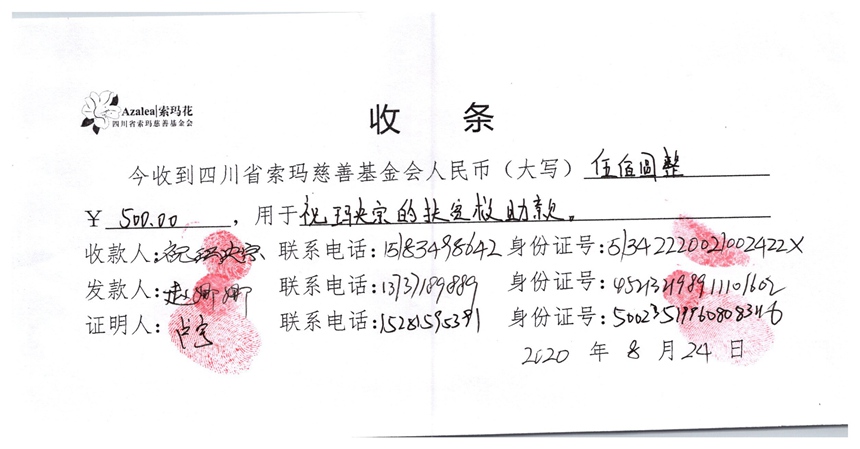 Azalea|索玛花
四川省索玛慈善基金会
收 条
今收到四川省索玛慈善基金会人民币（大写）伍佰圆整
￥ 500.00 ，用于祝玛央宗的扶贫救助款。
收款人：祝玛央宗 联系电话：15183498642 身份证号：51342220021002422X
发款人：赵娜娜 联系电话：13737189889 身份证号：
证明人：卢宇 联系电话：15281595391 身份证号：
2020 年 8 月 24 日